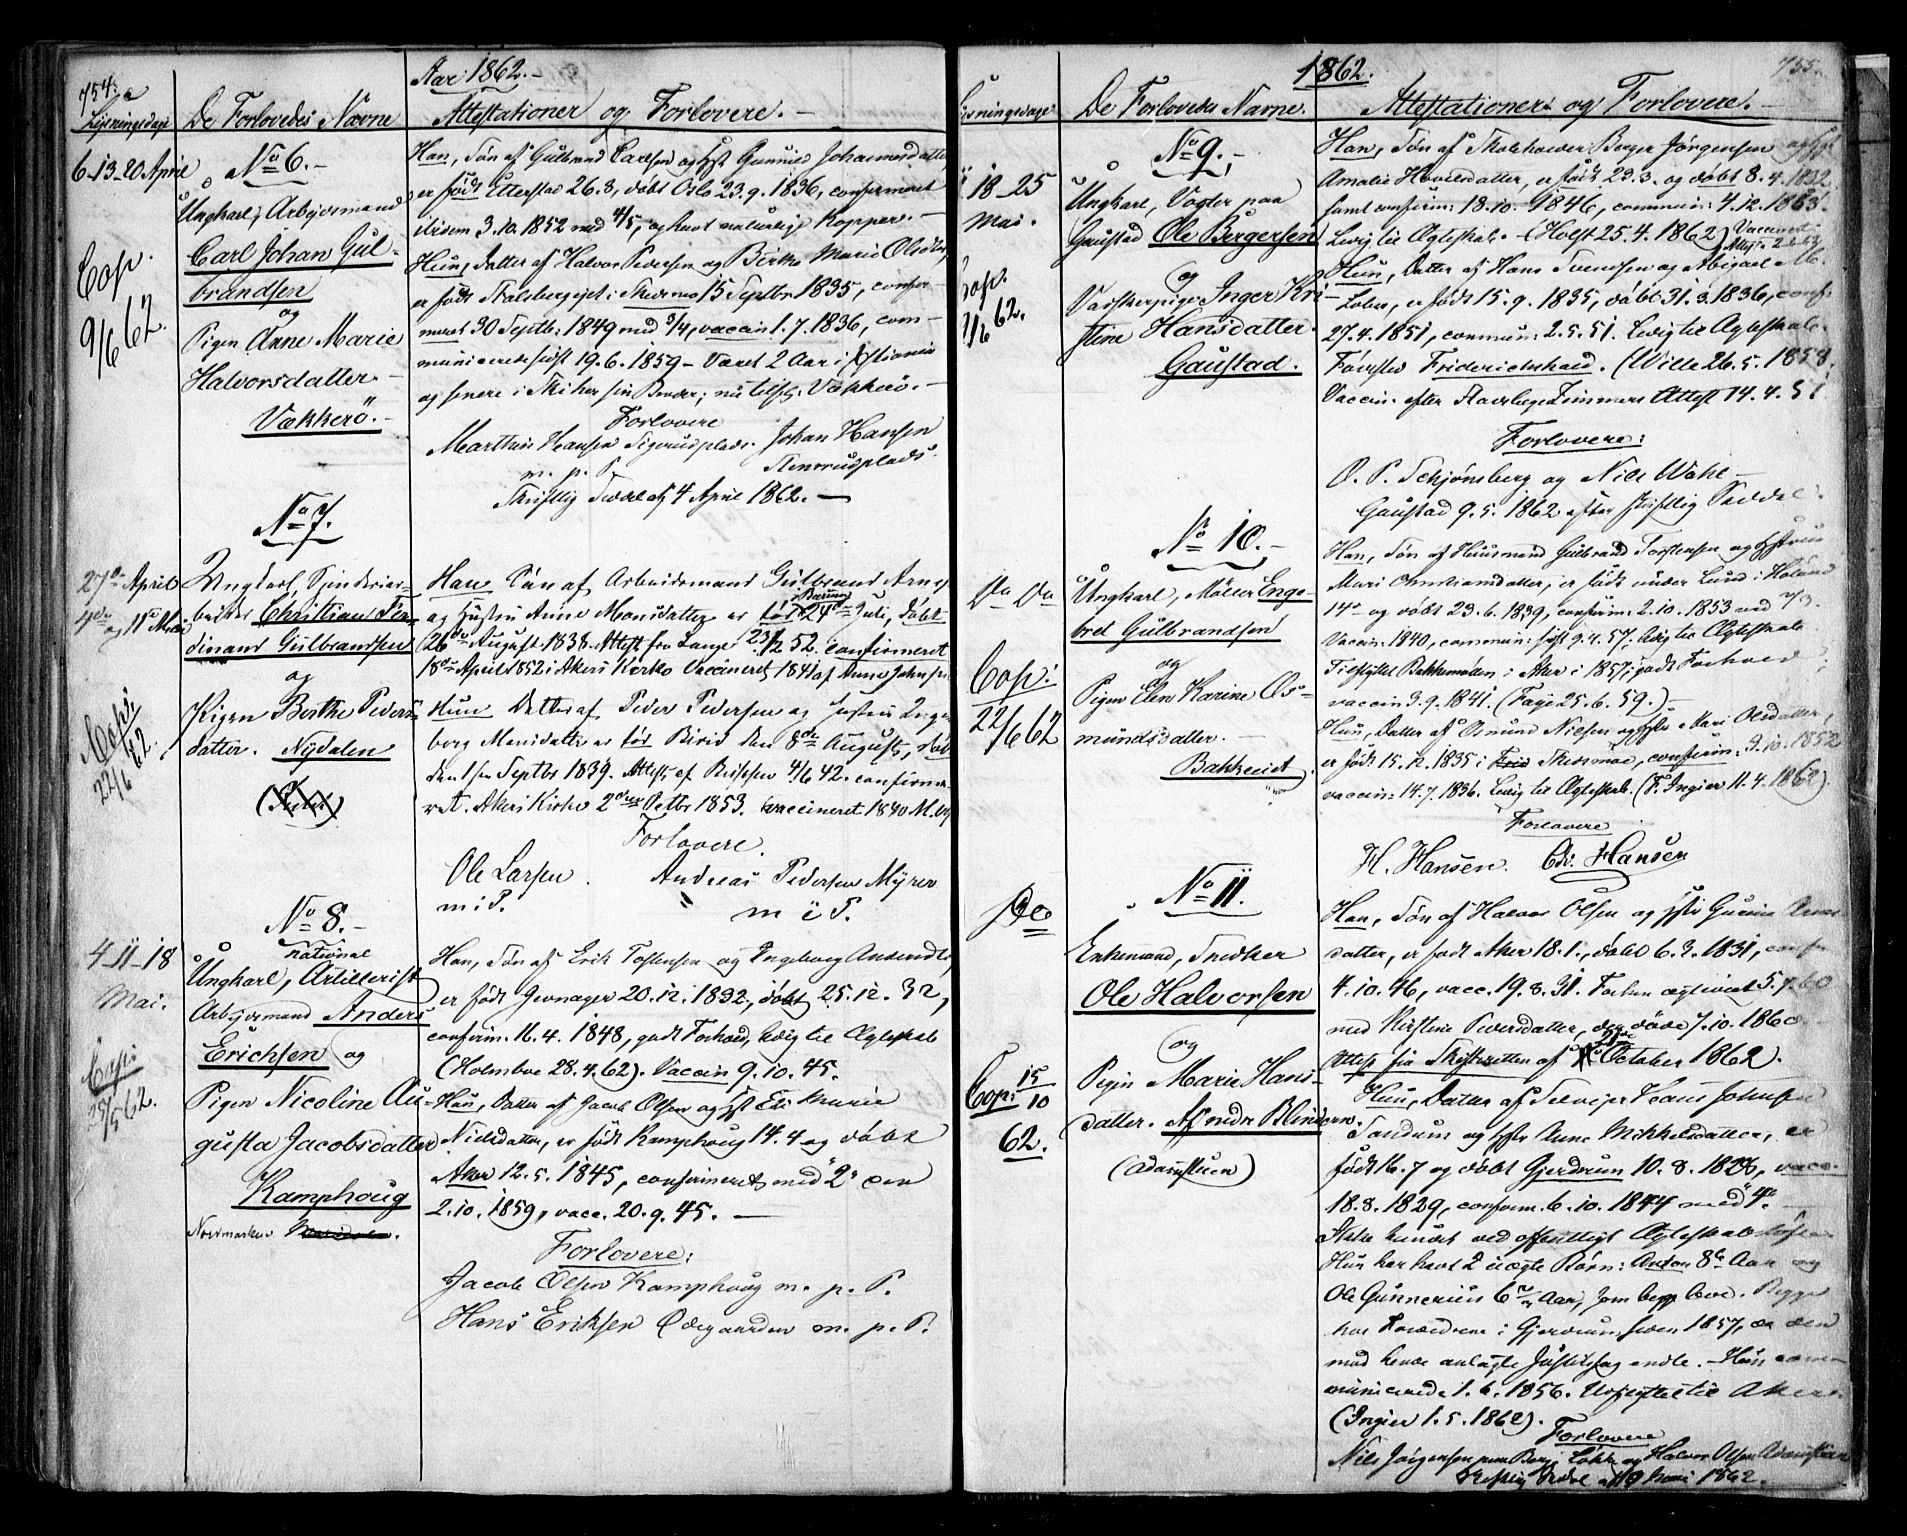 754.
Aar 1862.-
Lysningsdage
De Forlovedes Navne
Attestationer og Forlovere.-
6-13-20 April
No 6.-
Ungkarl, Arbejdsmand
Carl Johan Gul-
brandsen
og
Pigen Anne Marie
Halvorsdatter.-
Vækkerö.-
Cop.
9/6 62.
Han, Søn af Gulbrand Carlsen og Gunnild Johannesdatter,
er født Etterstad 26.8, döbt Oslo 23.9.1836, confirmeret
3.10.1852 med 4/5, og havt naturlige Kopper.-
Hun, Datter af Halvor Pedersen og Birthe Marie Olsdtr,
er født i Skedsmo 15 Septbr 1835, confir-
meret 30 Septbr: 1849 med 3/4, vaccin 1.7.1836, com-
municerede sidst 19.6.1859 - Været 2 Aar i Xstiania
og senere i Aker sin Broder; nu Vækkerö.-
Forlovere
Marthin Hansen Sigerudplads. Johan Hansen
m. p. P. Stensrudplads.
Skriftlig Seddel af 4 April 1862.-
No 7.
27de April
4de og 11te Mai
Ungkarl, Spinderiar-
beider Christian Fer-
dinand Gulbrandsen
og
Pigen Berthe Peders-
datter. Nydalen
Copi
22/6 62.
Han Søn af Arbeidsmand Gulbrand Arnes
og Hustru Anne Monsdatter er föd Bærum 24de Juli, döbt
26de August 1838. Attest fra Lange 23/12 52. confirmeret
18de April 1852 i Akers Kirke Vaccineret 1841 af Anne Johnsen
Hun Datter af Peder Pedersen og Hustru Inge-
borg Monsdatter er föd Birid den 8de August, döbt
den 1ste Septbr 1839. Attest af 4/6 42. confirme-
ret. Akers Kirke 2den Octbr 1853. vaccineret 1840
Forlovere.
Ole Larsen. Andreas Pedersen Myrer
m i P. m i P.
No 8.-
4-11-18
Mai.
national
Ungkarl, Artillerist
Arbejdsmand Anders
Erichsen og
Pigen Nicoline Au-
gusta Jacobsdatter
Kamphoug
Nordmarken
Copi
25/5 62.
Han, Søn af Erik Tostensen og Ingeborg Andersdtr,
er født Jevnager 20.12.1832, döbt 25.12.32,
confirm. 16.4.1848, godt Forhold, ledig til Ægteskab
(Holmboe 28.4.62). Vaccin 9.10.45.
Hun, Datter af Jacob Olsen og Hst Eli Marie
Nielsdatter, er født Kamphoug 14.4 og döbt
Aker 12.5.1845, confirmeret med "2" den
2.10.1859, vacc. 20.9.45.-
Forlovere:
Jacob Olsen Kamphoug m. p. P.
Hans Eriksen Ödegaarden m. p. P.
755.
1862.
De Forlovedes Navne.
Attestationer og Forlovere.-
No 9.-
18-25
Mai.
Ungkarl, Vogter paa
Gaustad Ole Bergersen
og
Vaskerpige Inger Kri-
stine Hansdatter.
Gaustad.
Cop.
62.
Han, Søn af Skoleholder Berger Jörgensen og Hst
Amalie Hovelsdatter, er født 23.3. og döbt 8.4.1832
samt confirm: 18.10.1846, commun: 4.12.1853.
Ledig til Ægteskab.- (Holst 25.4.1862)
Hun, Datter af Hans Svendsen og Abigael
er født 15.9.1835, döbt 31.3.1836, conf:
27.4.1851, commun: 2.5.51. Ledig til Ægteskab.
Fødested Frederikshald. (Wille 26.5.1858.
Vaccin: efter Attest 14.4.51
Forlovere:
O. P. Schjönsberg og Nils Wahl-
Gaustad 9.5.1862 efter skriftlig Seddel.
No 10.-
Do Do
Ungkarl, Möller Enge-
bret Gulbrandsen
og
Pigen Elen Karine Os-
mundsdatter.-
Bakkerud
Cop:
22/6 62
Han, Søn af Huusmand Gulbrand Torstensen og Hustru
Mari Christiansdatter, er født under Lund i Höland
14de og döbt 23.6.1839, confirm: 2.10.1853 med
Vaccin: 1840, commun: sidst 9.4.57. ledig til Ægteskab
Tilflyttet i Aker i 1857; godt Forhold;
vaccin 3.9.1841. (Faye 25.6.59).-
Hun, Datter af Osmund Nielsen og Hstr Mari Olsdatter,
er født 15.12.1835 i Skedsmoe, confirm: 3.10.1852
vaccin: 14.7.1836. Ledig til Ægteskab. (F. Ingier 11.4.1862).
Forlovere
H. Hansen. Chr. Hansen
No 11.
Do
Enkemand, Snedker
Ole Halvorsen
og
Pigen Marie Hans-
datter. Af nedre Blindern.
(Adamstuen)
Cop: 15/10
62.
Han, Søn af Halvor Olsen og Hstr
datter, er født Aker 18.1., döbt 6.3.1831, conf
4.10.46, vacc. 19.8.31. Forhen ægteviet 5.
med Kirstine Pedersdatter, der döde 7.10.1860.
Attest fra Skifteretten af October 1862.
Hun, Datter af Hans Johnsen
og Hstr Anne Mikkelsdatter, er
født 16.7 og döbt Gjerdrum 10.8.1828, vacc.
18.8.1829, confirm. 6.10.1844 med "4".-
Ikke hindret ved offentligt Ægteskabslöfte.
Hun har havt 2 uægte Børn: Anton 8 Aar og
Ole Gunnerius 6 Aar, som begge leve. Begge
i Gjerdrum siden 1857, da den
mod hende anlagte Justitssag endte.- Hun com-
municerede 1.6.1856. Udflyttet til Aker.
(Ingier 1.5.1862).
Forlovere
Nils Jörgensen paa Berg Løkke og Halvor Olsen Adamstuen
1862.